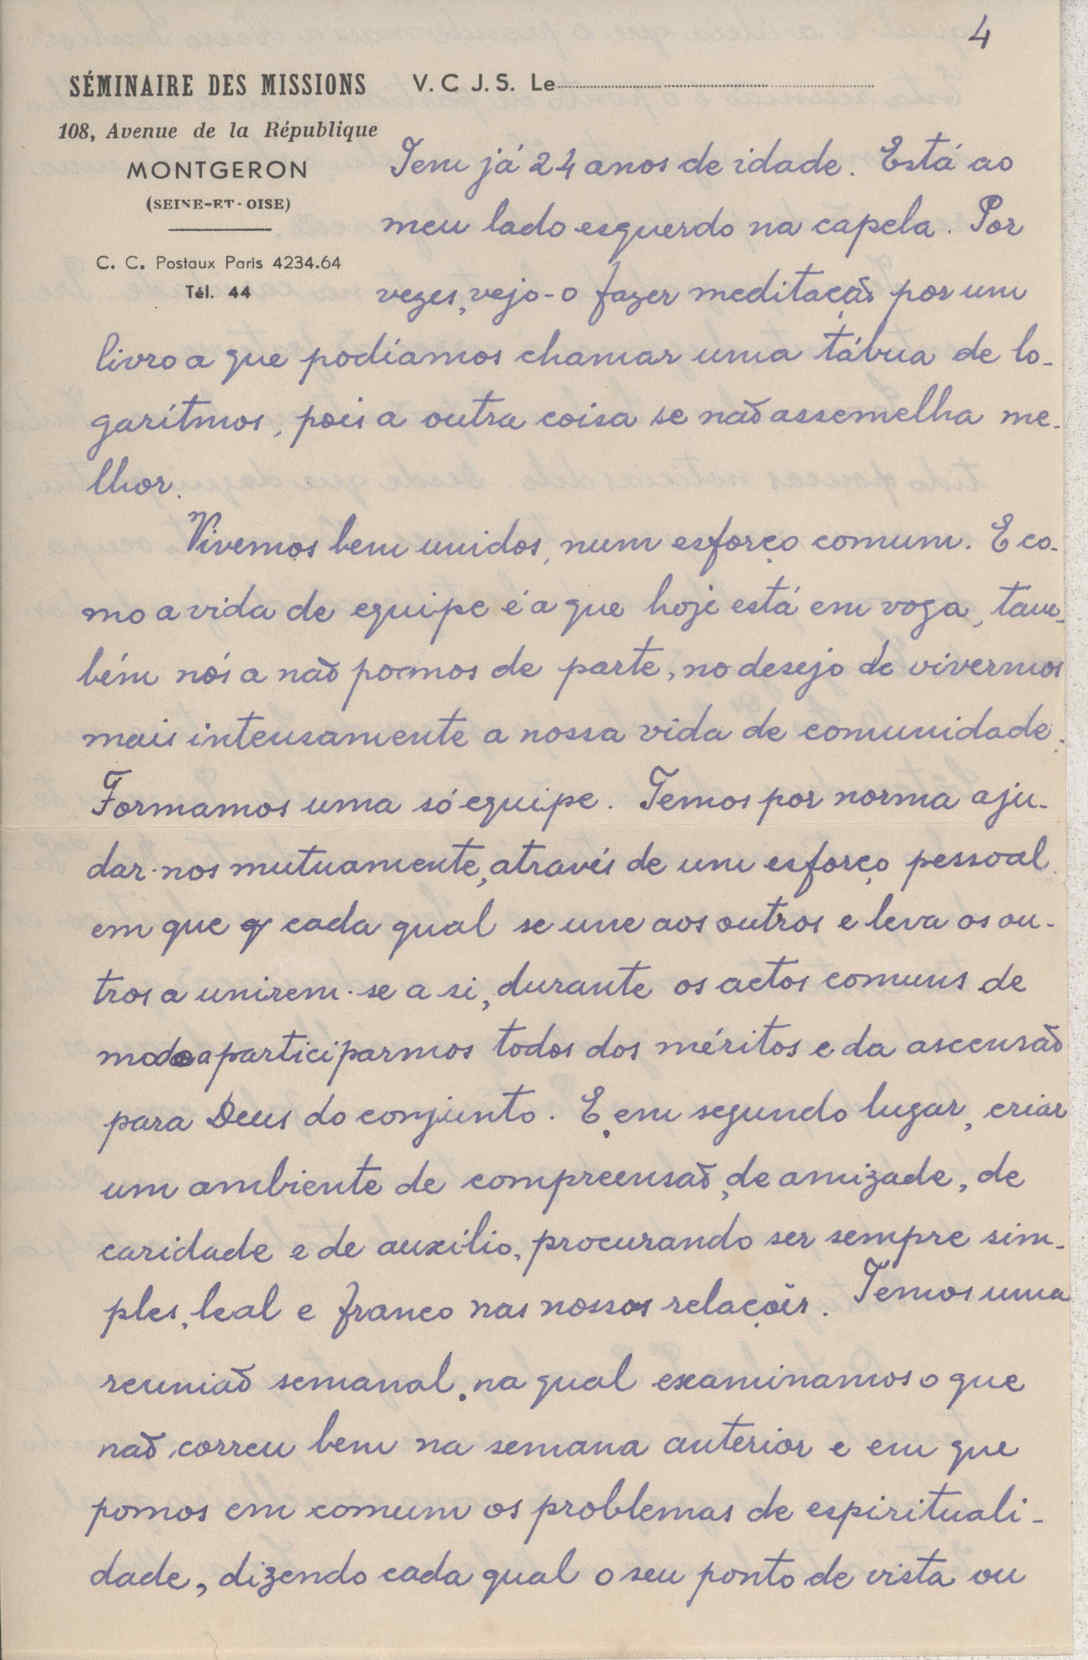 4
SÉMINAIRE DES MISSIONS V. C. J. S. Le
108, Avenue de la République
MONTGERON
(SEINE-ET-OISE)
C. C. Postaux Paris 4234.64
Tél. 44
Tem já 24 anos de idade. Está ao
meu lado esquerdo na capela. Por
vezes, vejo-o fazer meditação por um
livro a que podíamos chamar uma tábua de lo-
garítmos, pois a outra coisa se não assemelha me-
lhor.
Vivemos bem unidos, num esforço comum. E co-
mo a vida de equipe é a que hoje está em voga, tam-
bém nós a não pomos de parte, no desejo de vivermos
mais intensamente a nossa vida de comunidade.
Formamos uma só equipe. Temos por norma aju-
dar-nos mutuamente, através de um esforço pessoal
em que cada qual se une aos outros e leva os ou-
tros a unirem-se a si, durante os actos comuns de
modo a participarmos todos dos méritos e da ascensão
para Deus do conjunto. E, em segundo lugar, criar
um ambiente de compreensão, de amizade, de
caridade e de auxílio, procurando ser sempre sim-
ples, leal e franco nas nossas relações. Temos uma
reunião semanal, na qual examinamos o que
não correu bem na semana anterior e em que
pomos em comum os problemas de espirituali-
dade, dizendo cada qual o seu ponto de vista ou